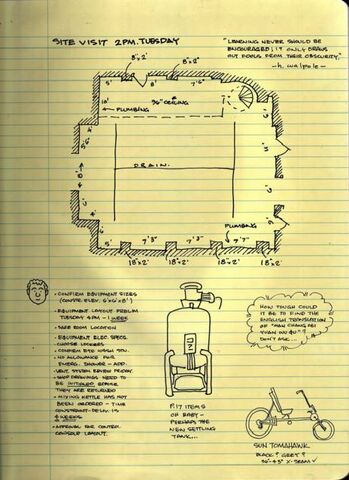 SITE VISIT 2PM. TUESDAY
"LEARNING NEVER SHOULD BE
ENCOURAGED; IT ONLY DRAWS
OUT FOOLS FROM THEIR OBSCURITY."
-h. walpole-
8'x2'
8'x2'
5'
8'
7'6"
10'
PLUMBING
96" CEILING
4'
5'6"
DRAIN.
8'0"
4'
5'
PLUMBING
7'3"
7'3"
7'7"
18"x2'
18"x2'
18"x2'
18"x2'
• CONFIRM EQUIPMENT SIZES
(CONTR. ELEV. 6'x6'x8')
• EQUIPMENT LAYOUT PRELIM
TUESDAY 4PM - 1 WEEK
• SAFE ROOM LOCATION
• EQUIPMENT ELEC. SPECS.
• CHOOSE LOCKERS
• CONFIRM EYE WASH STN.
• NO ALLOWANCE FOR
EMERG. SHOWER - ADD.
• VENT. SYSTEM REVIEW FRIDAY
• SHOP DRAWINGS NEED TO
BE INITIALED BEFORE
THEY ARE RETURNED
• MIXING KETTLE HAS NOT
BEEN ORDERED - TIME
CONSTRAINT - DELAY IS
6 WEEKS.
• APPROVAL FOR CONTROL
CONSOLE LAYOUT.
P.17 ITEMS
ON EBAY -
PERHAPS THE
NEW SETTLING
TANK...
HOW TOUGH COULD
IT BE TO FIND THE
ENGLISH TRANSLATION
OF
DON'T ASK...
SUN TOMAHAWK
BLACK? GREY?
X-SEAM